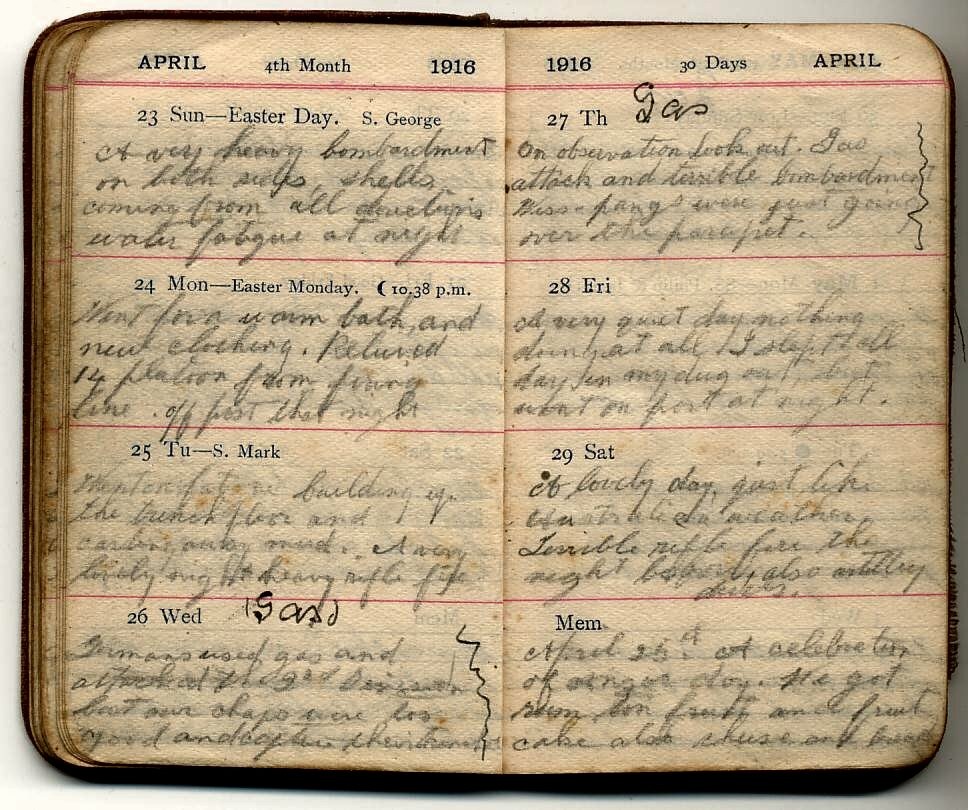 APRIL 4th Month 1916
23 Sun—Easter Day. S. George
A very heavy bombardment
on both sides, shells
coming from all directions
water fatigue at night
24 Mon—Easter Monday. ☾ 10.38 p.m.
Went for a warm bath, and
new clothing. Relieved
14 platoon from firing
line. off post that night
25 Tu—S. Mark
building up
the trench floor and
away mud. A very
lovely night heavy rifle fire
26 Wed (Gas)
Germans used gas and
attacked the 2nd Division
but our chaps were too
good and capture their trench
1916 30 Days APRIL
27 Th Gas
On observation look out. Gas
attack and terrible bombardment
were just going
over the parapet.
28 Fri
A very quiet day nothing
doing at all. I slept all
day in my dug out but
went on post at night.
29 Sat
A lovely day, just like
Australian weather
Terrible rifle fire the
night before also artillery
Mem
April 25th A celebration
of day. We got
rum, tin fruit and fruit
cake also cheese and bread